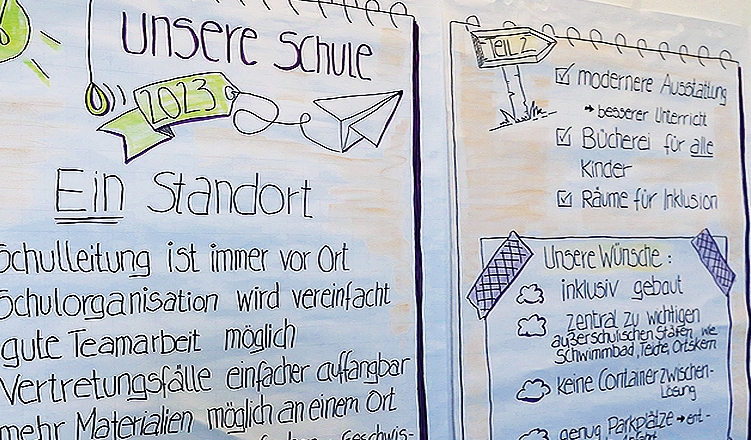 unsere Schule
2023
Ein Standort
Schulleitung ist immer vor Ort
Schulorganisation wird vereinfacht
gute Teamarbeit möglich
Vertretungsfälle einfacher auffangbar
mehr Materialien möglich an einem Ort
Geschwis-
Teil 2
modernere Ausstattung
→ besserer Unterricht
Bücherei für alle
Kinder
Räume für Inklusion
Unsere Wünsche:
inklusiv gebaut
zentral zu wichtigen
außerschulischen Stätten wie
Schwimmbad, Teiche, Ortskern
keine Containerzwischen-
lösung
genug Parkplätze → ent-